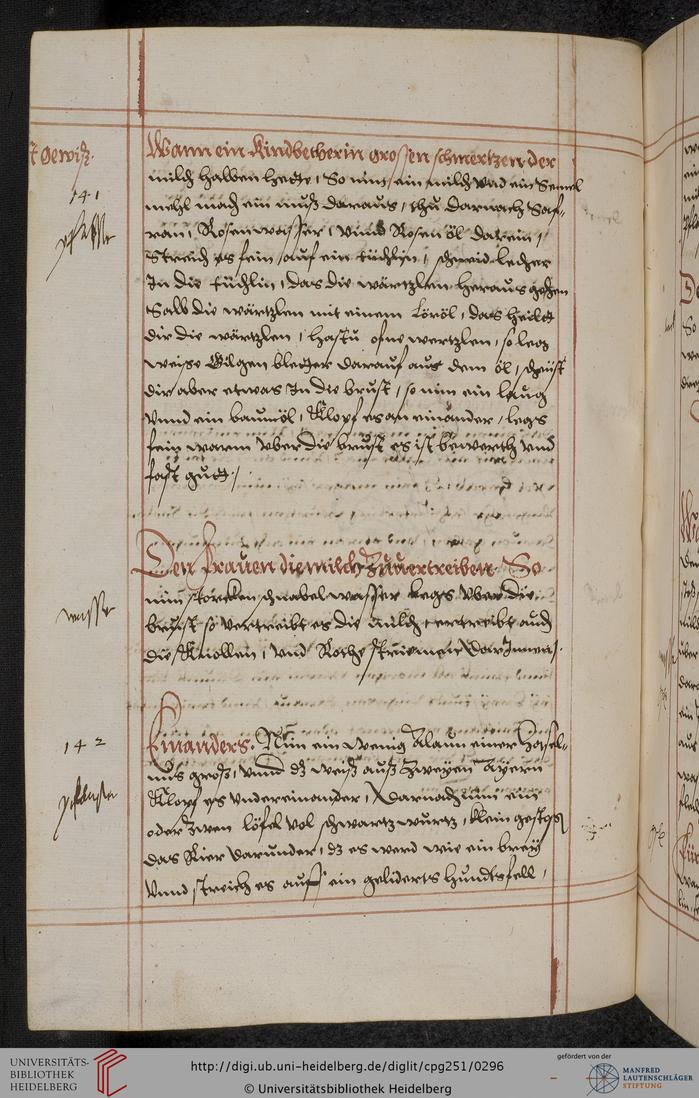 Gewiß.
141
Wann ein Kindbetherin grossen schmertzen der
milch halben hette, So nim ein milch vnd ein Semel
mehl mach ein muß daraus, thu darnach Saf-
ran, Rosenwasser, vnnd Rosen öl darein,
Streich es fein auf ein tüchlin, schneid lecher
In die tüchlin, das die wärtzlen heraus gehen
Salb die wärtzlen mit einem Loröl, das heilet
dir die wärtzlen, hastu ofne wertzlen, so leg
weisse Gilgen bletter darauf aus dem öl, scheüst
dir aber etwas In die brust, so nim ein laug
vnnd ein baumöl, Klopf es an einander, legs
fein warm vber die brust es ist bewerth vnd
fast gutt.
wasser
Den frauen die milch Zuuertreiben So
nim storcken schnabel wasser legs vber die
brust so vertreibt es die milch, vertreibt auch
die Knollen, vnd Rothe striemen darInnen.
142
Einanders. Nim ein wenig Alaun einer Hasel-
nus groß, vnnd dz weiß auß Zweyen Ayern
Klopf es vndereinander, Darnach nim ein
oder Zwen löfel vol schwartz wurtz, klein gestosen
das Rier darunder, dz es werd wie ein brey
Vnnd streich es auff ein geliderts hundtsfell,
UNIVERSITÄTS-
BIBLIOTHEK
HEIDELBERG
http://digi.ub.uni-heidelberg.de/diglit/cpg251/0296
© Universitätsbibliothek Heidelberg
gefördert von der
MANFRED
LAUTENSCHLÄGER
STIFTUNG